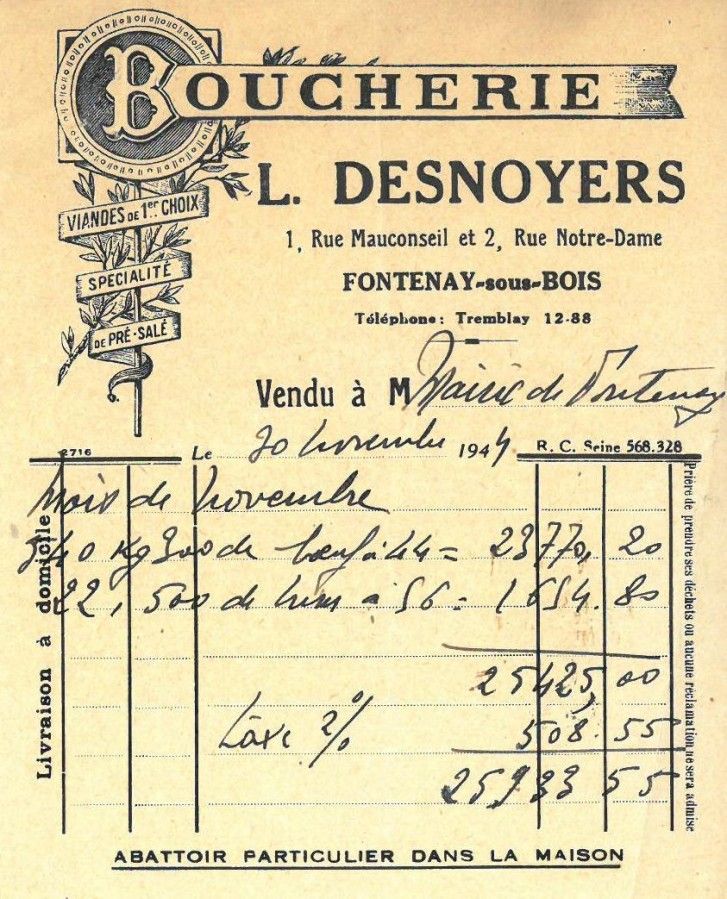 BOUCHERIE
L. DESNOYERS
VIANDES DE 1er CHOIX
SPECIALITÉ
DE PRÉ-SALÉ
1, Rue Mauconseil et 2, Rue Notre-Dame
FONTENAY-sous-BOIS
Téléphone: Tremblay 12-88
Vendu à M Mairie de Fontenay
2716
Le 30 novembre 1944
R. C. Seine 568.328
Mois de novembre
540 Kg 300 de bœuf à 44 = 23770, 20
22, 500 de à 56 = 1654. 80
25425, 00
taxe 2% 508. 55
25933 55
Livraison à domicile
Prière de prendre ses déchets ou aucune réclamation ne sera admise
ABATTOIR PARTICULIER DANS LA MAISON